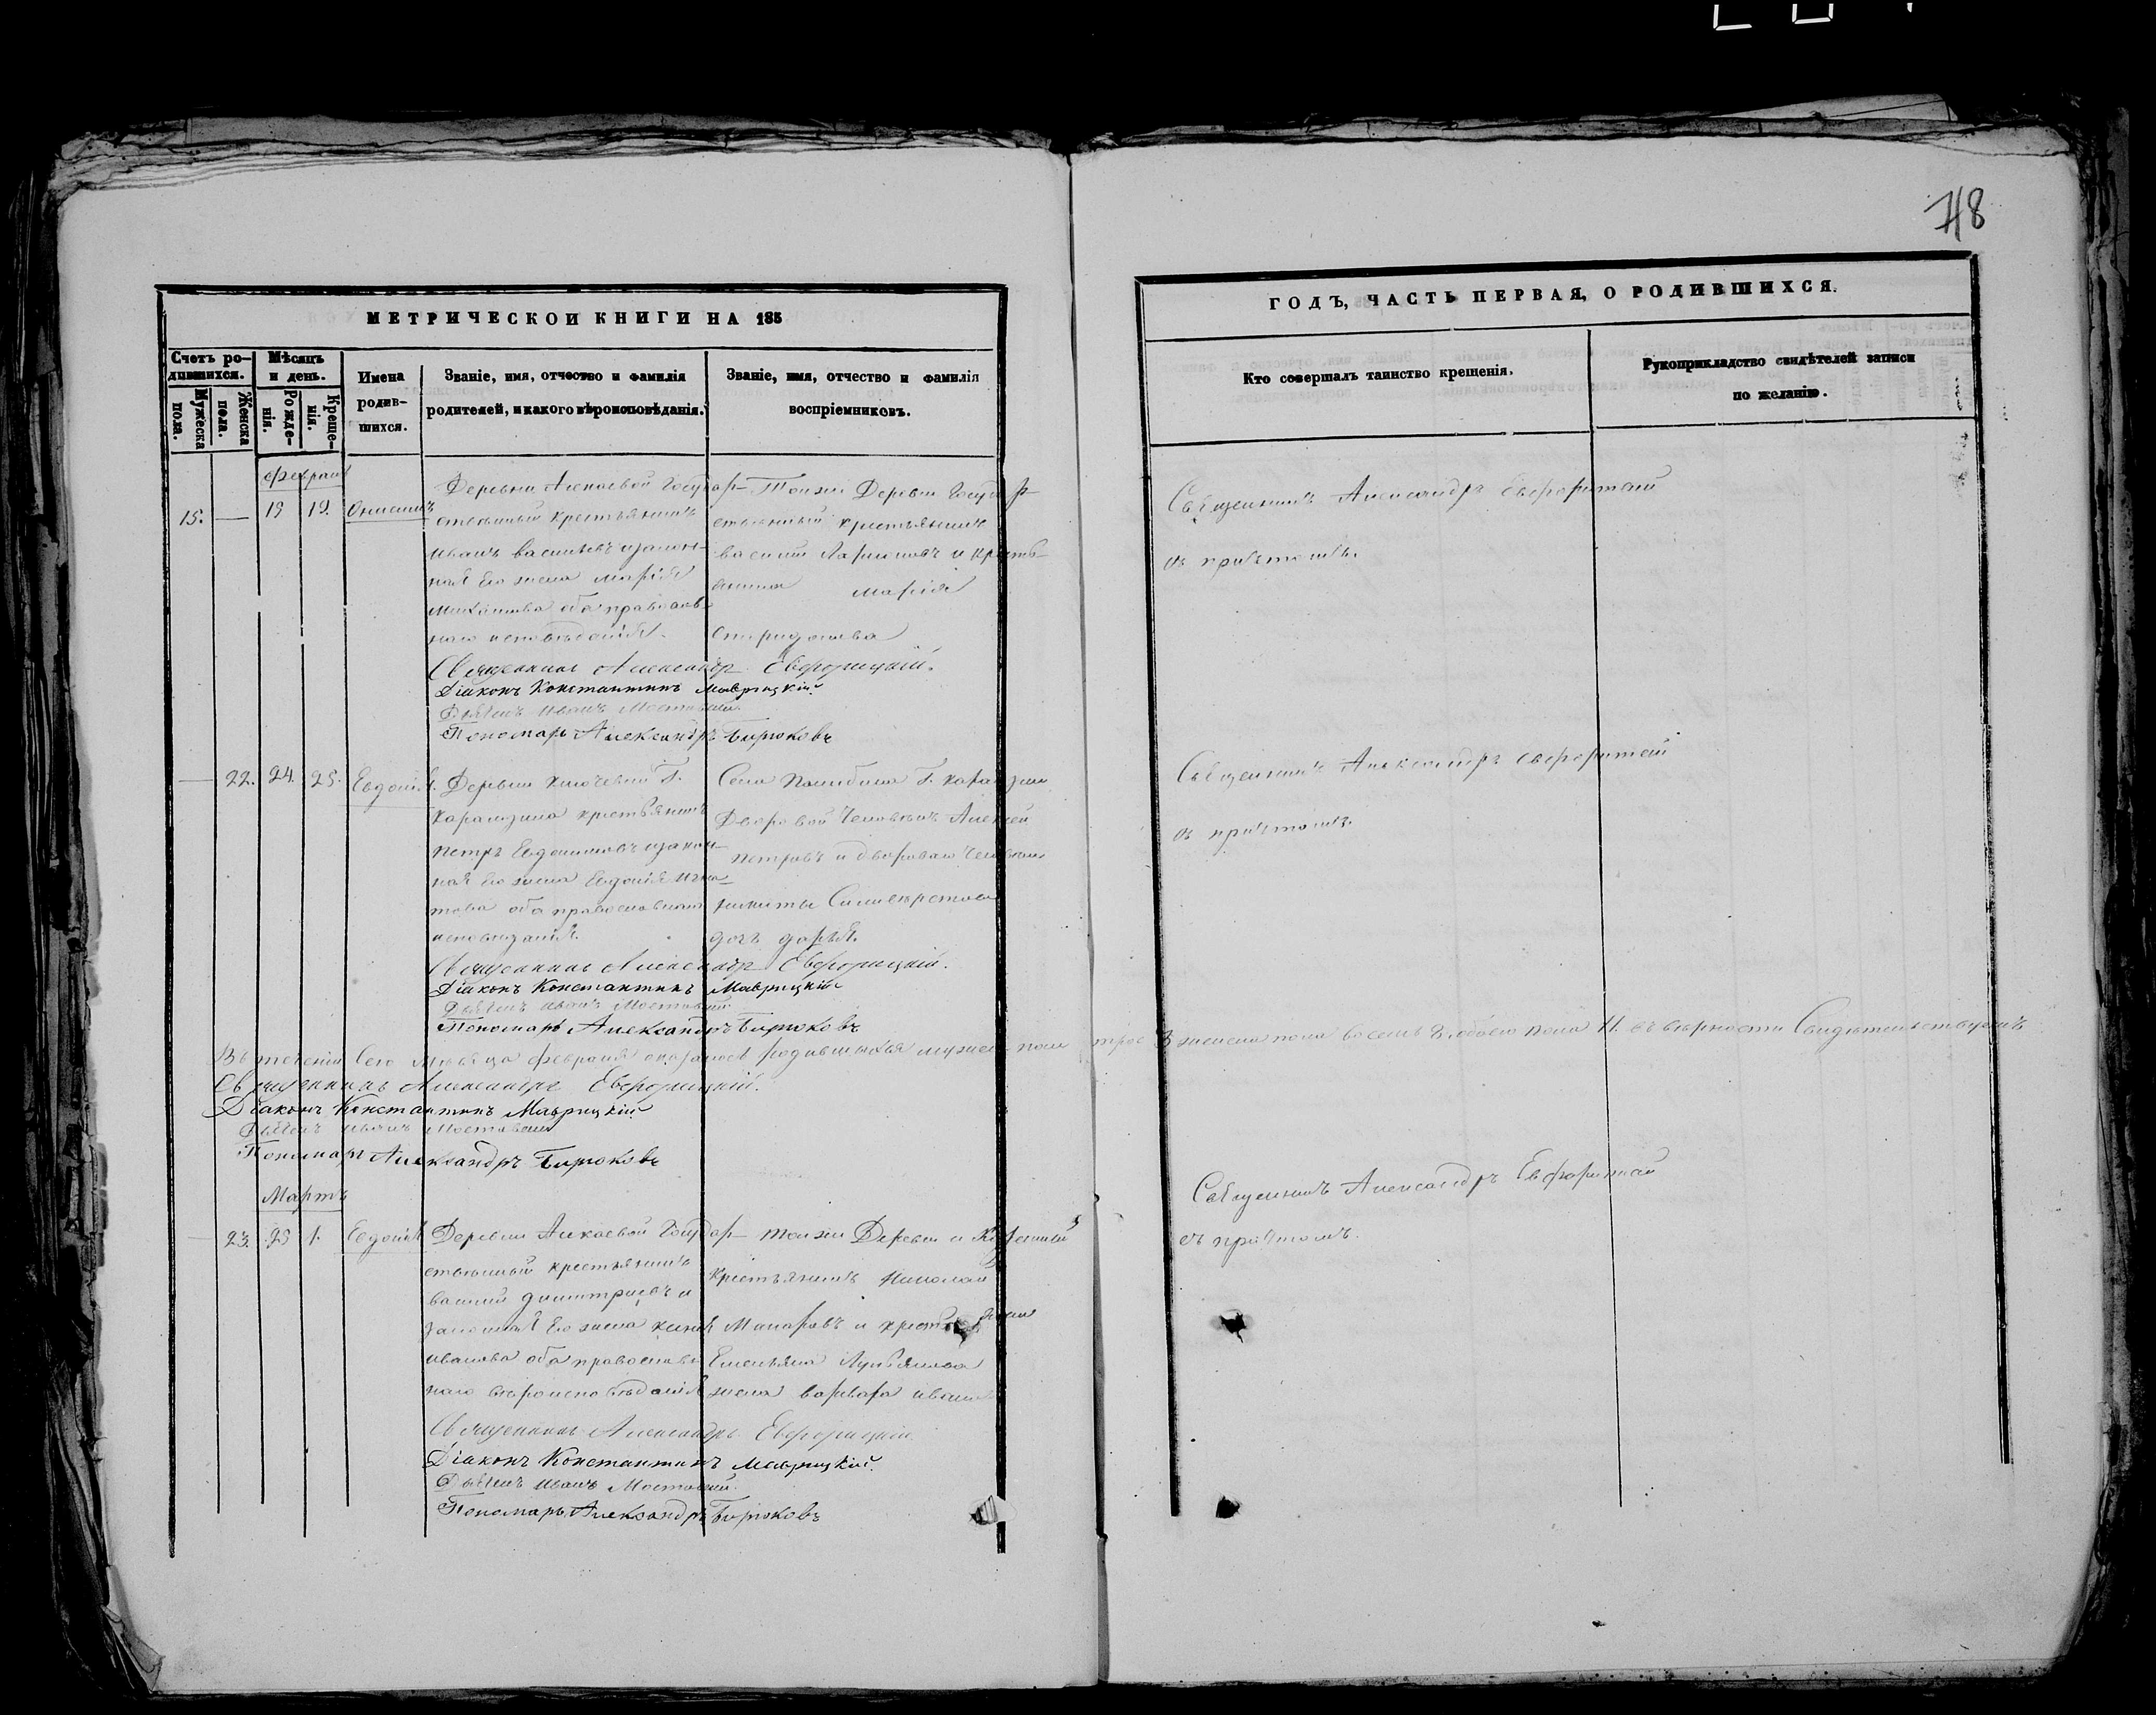 748
МЕТРИЧЕСКОЙ КНИГИ НА 185
ГОДЪ, ЧАСТЬ ПЕРВАЯ, О РОДИВШИХСЯ.
Счетъ ро-
дившихся.
Мужеска
пола.
Женска
пола.
Мѣсяцъ
и день.
Рожде-
нія.
Креще-
нія.
Имена
родив-
шихся.
Званіе, имя, отчество и фамилія
родителей, и какого вѣроисповѣданія.
Званіе, имя, отчество и фамилія
воспріемниковъ.
Кто совершалъ таинство крещенія.
Рукоприкладство свидѣтелей записи
по желанію.
15. — 19 19.
Деревни Алкаевой Государ-
ственный крестьянинъ
Иванъ Васильевъ и закон-
ная его жена Марія
оба православ-
наго исповѣданія.
Тойже Деревни Государ-
ственный крестьянинъ
Василий Ларионовъ и кресть-
янина Марія
Спиридонова
Священникъ Александръ
съ причтомъ.
Священникъ Александръ
Діаконъ Константинъ Маврицкій.
Дьячекъ Иванъ
Пономарь Александръ Бирюковъ
— 22. 24. 25. Евдокія.
Деревни Ключевки Г.
Карамзина крестьянинъ
Петръ Евдокимовъ и закон-
ная его жена Евдокія Игна-
това оба православнаго
исповѣданія.
Села Г. Карамзина
Дворовой Человѣкъ Алексѣй
Петровъ и двороваго человѣка
Никиты
дочь Дарья.
Священникъ Александръ
съ причтомъ.
Священникъ Александръ
Діаконъ Константинъ Маврицкій
Дьячекъ Иванъ
Пономарь Александръ Бирюковъ
Въ теченіи сего мѣсяца февраля оказалось родившихся мужеска пола трое 3 женска пола восемь 8. обоего пола 11. въ вѣрности свидѣтельствуемъ
Священникъ Александръ
Діаконъ Константинъ Маврицкій
Дьячекъ Иванъ
Пономарь Александръ Бирюковъ
Мартъ
— 23. 29 1. Евдокія
Деревни Алкаевой Государ-
ственный крестьянинъ
Василий Димитриевъ и
законная его жена
Иванова оба православ-
наго вѣроисповѣданія
Тойже Деревни
крестьянинъ Николай
Макаровъ и
Емельяна Лукьянова
жена Варвара
Священникъ Александръ
съ причтомъ.
Священникъ Александръ
Діаконъ Константинъ Маврицкій.
Дьячекъ Иванъ
Пономарь Александръ Бирюковъ